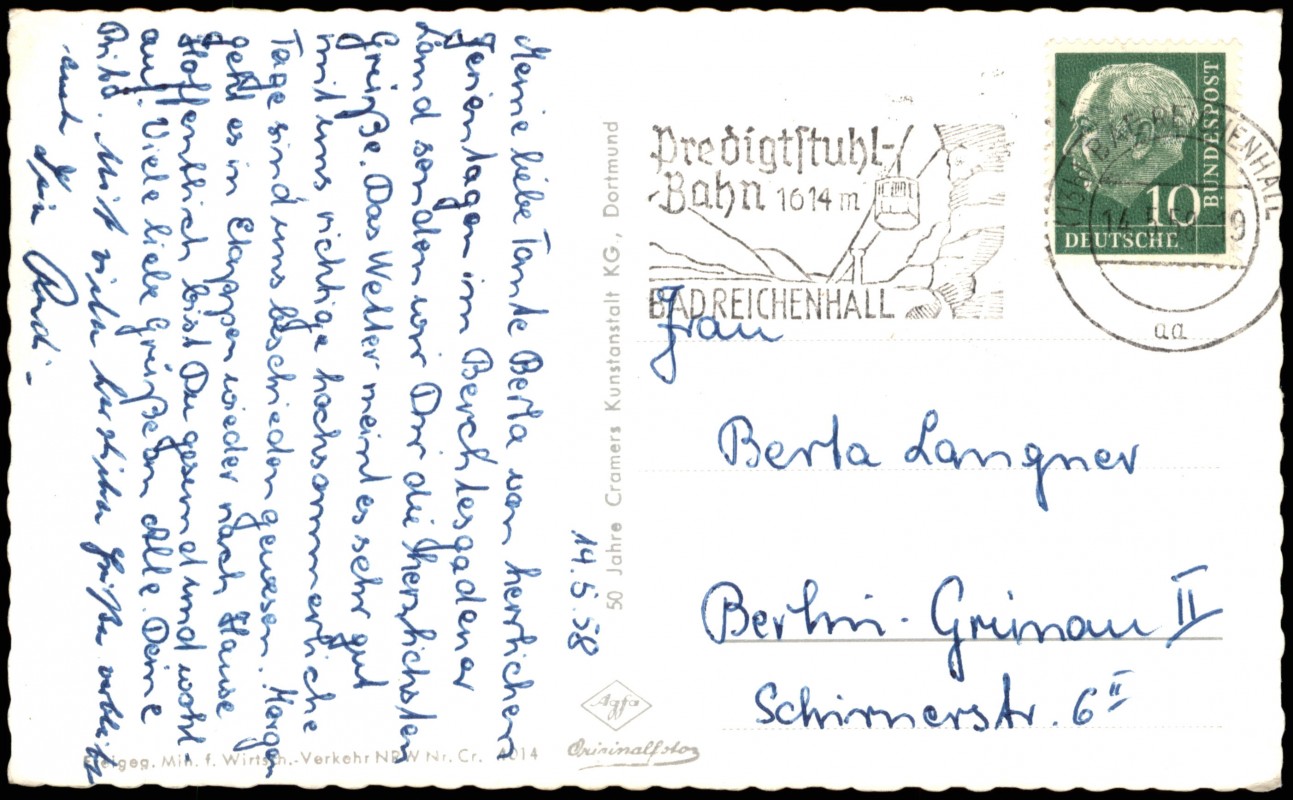 14.5.58
Meine liebe Tante Berta von herrlichen
Ferientagen im Berchtesgadener
Land senden wir Dir die herzlichsten
Grüße. Das Wetter meint es sehr gut
mit uns richtige hochsommerliche
Tage sind uns beschieden gewesen. Morgen
geht es in Etappen wieder nach Hause
Hoffentlich bist Du gesund und wohl-
auf. Viele liebe Grüße an Alle. Deine
Mit vielen herzlichen Grüßen verbleibt
auch Dein Rudi.-
50 Jahre Cramers Kunstanstalt KG., Dortmund
Freigeg. Min. f. Wirtsch.-Verkehr NRW Nr. Cr. 4014
Agfa
Originalfoto
Predigtstuhl-
Bahn 1614 m
BAD REICHENHALL
BUNDESPOST
10
DEUTSCHE
14.5.58
aa
Frau
Berta Langner
Berlin-Grünau II
Schirnerstr. 6 II